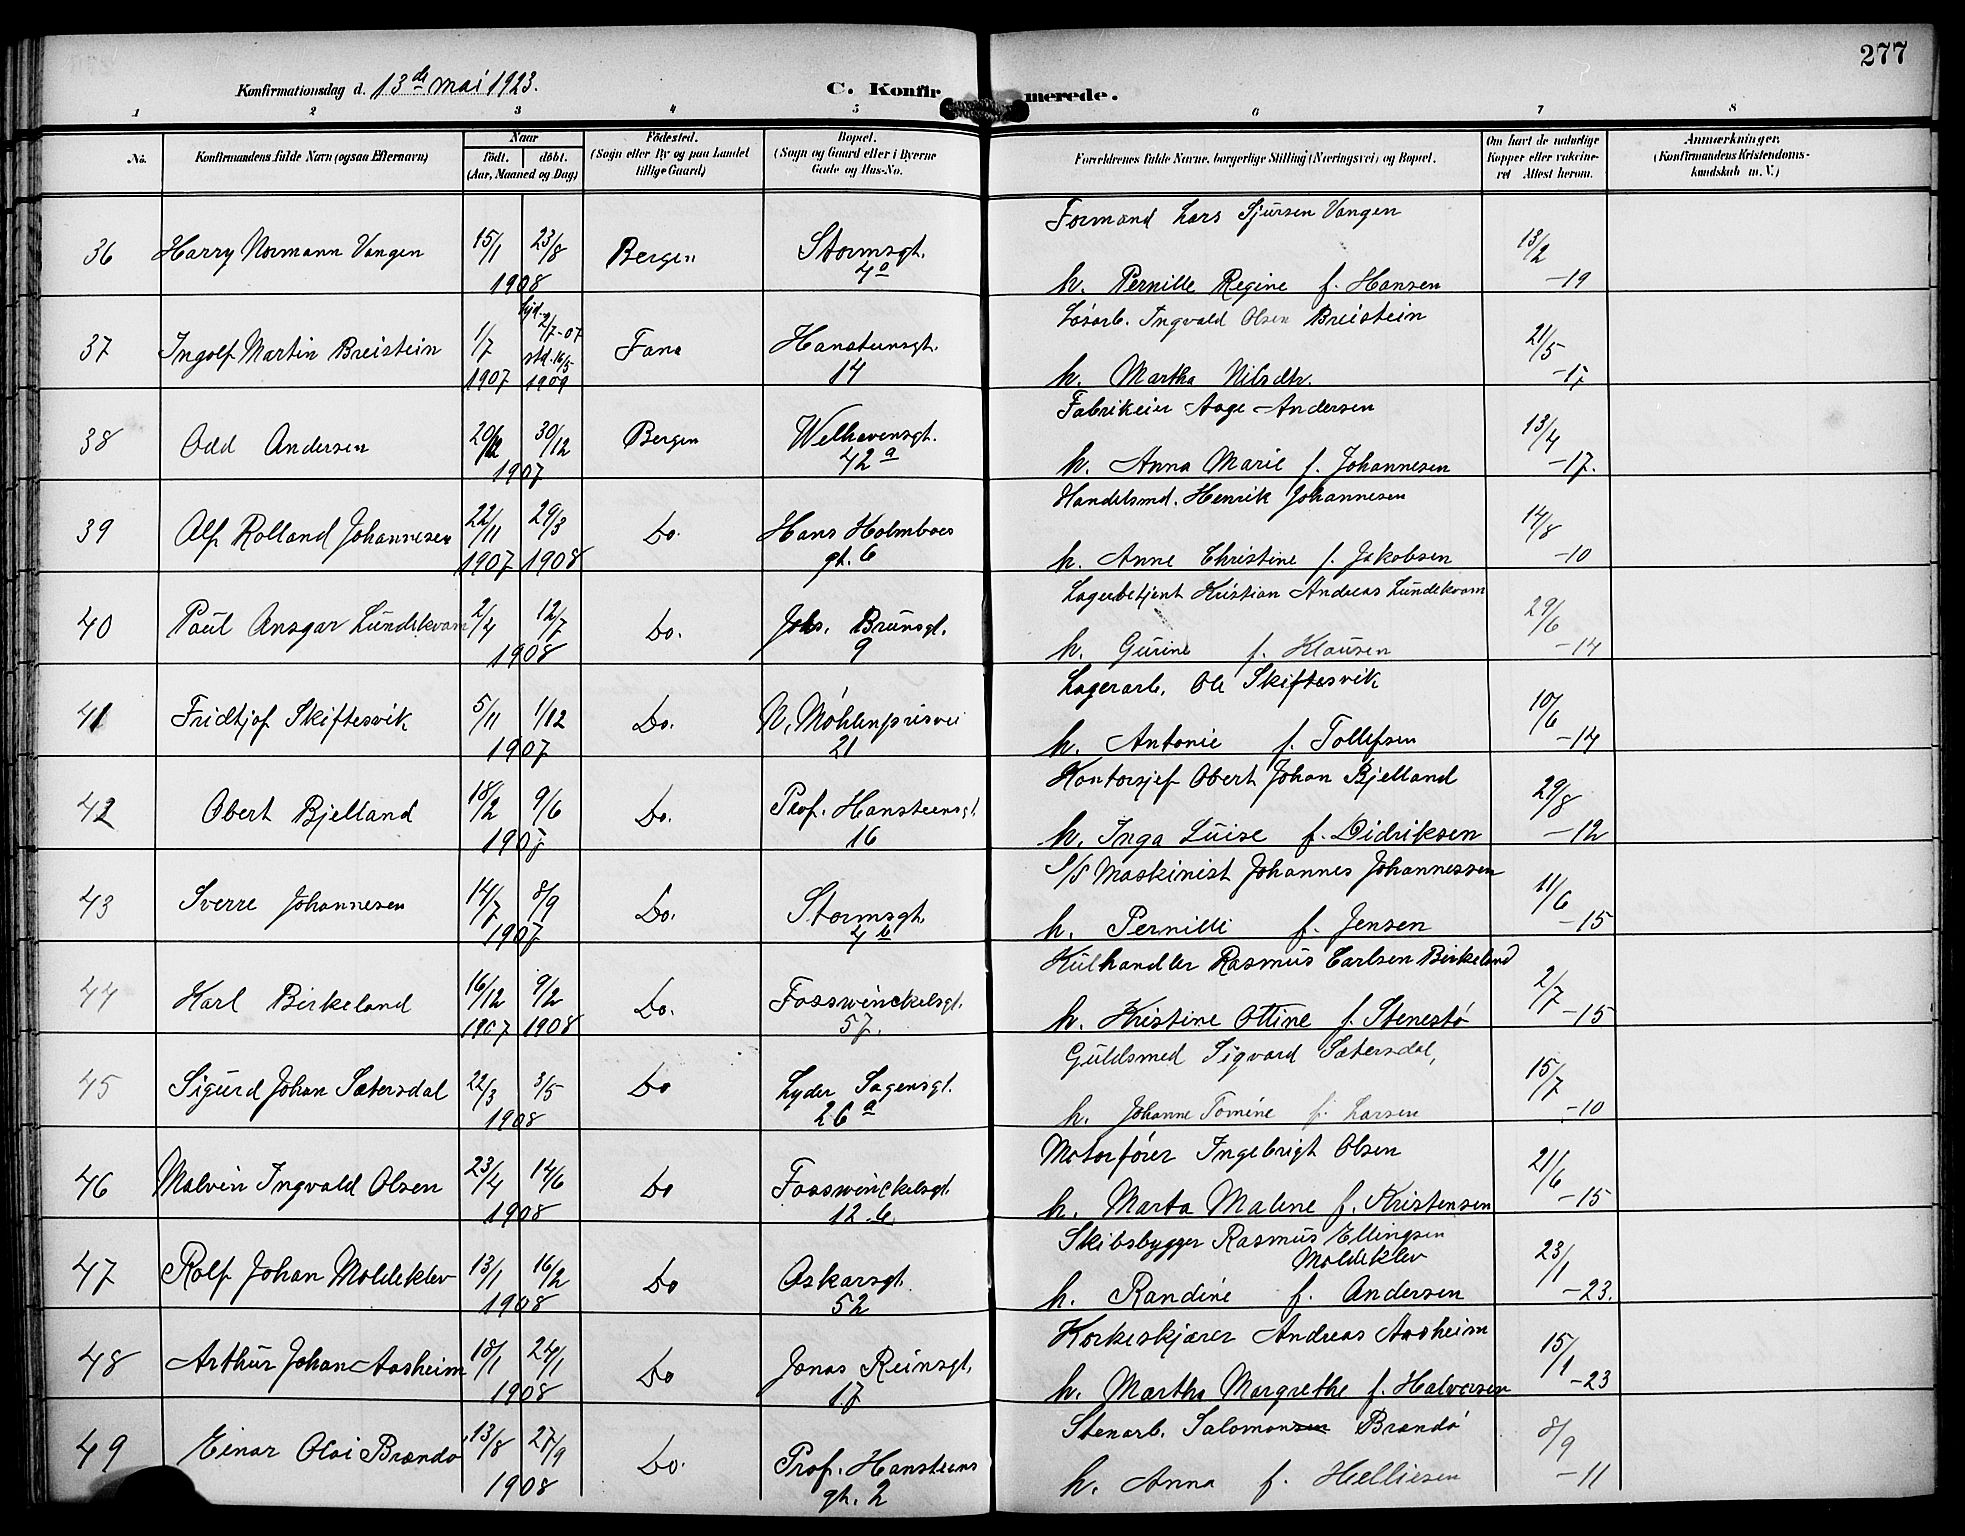 277
Konfirmationsdag d. 13de mai 1923.
C. Konfirmerede.
1 2 3 4 5 6 7 8
No.
Konfirmandens fulde Navn (ogsaa Efternavn)
Naar
født. døbt.
(Aar, Maaned og Dag)
Fødested.
(Sogn eller By og paa Landet
tillige Gaard)
Bopæl.
(Sogn og Gaard eller i Byerne
Gade og Hus-No.
Forældrenes fulde Navne, borgerlige Stilling (Næringsvei) og Bopæl.
Om havt de naturlige
Kopper eller vakcine-
ret Attest herom.
Anmærkninger.
(Konfirmandens Kristendoms-
kundskab m. V.)
36 Harry Normann Vangen 15/1 23/8 1908 Bergen Stormsgt. 4a
Formand Lars Sjursen Vangen
h. Pernille Regine f. Hansen 13/2 -19
37 Ingolf Martin Breistein 1/7 1907 hjd. 2/7-07 std. 16/5 1909 Fana Hansteensgt. 14
Løsarb. Ingvald Olsen Breistein
h. Martha Nilsdtr. 21/5 -17
38 Odd Andersen 20/12 30/12 1907 Bergen Welhavensgt. 42a
Fabrikeier Aage Andersen
h. Anna Marie f. Johannesen 13/4 -17.
39 Alf Rolland Johannesen 22/11 1907 29/3 1908 Do. Hans Holmboes gt. 6
Handelsmd. Henrik Johannesen
h. Anne Christine f. Jakobsen 14/8 -10
40 Paul Ansgar Lundekvam 2/4 12/7 1908 Do. Johs. Brunsgt. 9
Lagerbetjent Kristian Andreas Lundekvam
h. Gurine f. Klausen 29/6 -14
41 Fridtjof Skiftesvik 5/11 1/12 1907 Do. N. Møhlenprisvei 21
Lagerarb. Ole Skiftesvik
h. Antonie f. Tollefsen 10/6 -14
42 Obert Bjelland 18/2 9/6 1907 Do. Prof. Hansteensgt. 16
Kontorsjef Obert Johan Bjelland
h. Inga Luise f. Didriksen 29/8 -12
43 Sverre Johannesen 14/7 8/9 1907 Do. Stormsgt. 4b
S/S Maskinist Johannes Johannessen
h. Pernille f. Jensen 11/6 -15
44 Karl Birkeland 16/12 1907 9/2 1908 Do. Fosswinckelsgt. 57.
Kulhandler Rasmus Carlsen Birkeland
h. Kristine Ottine f. Stenestø 2/7 -15
45 Sigurd Johan Sætersdal 22/3 3/5 1908 Do Lyder Sagensgt. 26a
Guldsmed Sigvard Sætersdal,
h. Johanne Tomine f. Larsen 15/7 -10
46 Malvin Ingvald Olsen 23/4 14/6 1908 Do Fosswinckelsgt. 12.b.
Motorfører Ingebrigt Olsen
h. Marta Malene f. Kristensen 21/6 -15
47 Rolf Johan Moldeklev 13/1 16/2 1908 Do Oskarsgt. 52
Skibsbygger Rasmus Ellingsen
Moldeklev
h. Randine f. Andersen 23/1 -23.
48 Arthur Johan Aasheim 18/1 24/1 1908 Do Jonas Reinsgt. 17
Korkeskjærer Andreas Aasheim
h. Martha Margrethe f. Halvorsen 15/1 -23
49 Einar Olai Brandø 13/8 27/9 1908 Do. Prof. Hansteens gt. 2
Stenarb. Salomonsen Brandø
h. Anna f. Helliesen 8/9 -11